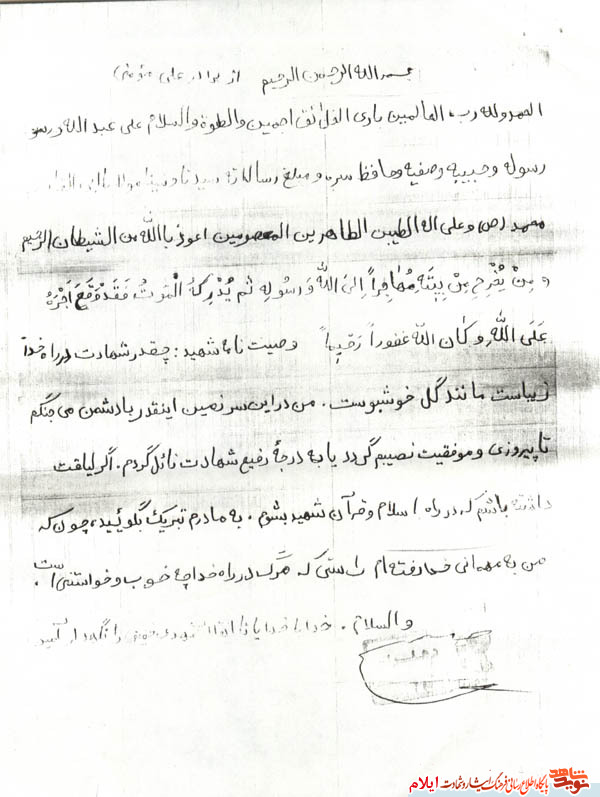 بسم الله الرحمن الرحیم از برادر علی
الحمدولله رب العالمین باری الخلائق اجمین والطوة والسلام علی عبد الله ورسو
رسوله وحبیبه وصفیه وحافظ سره ومبلغ رسالاته سیدنا ونبینا
محمد (ص) وعلی اله الطیبن الطاهرین المعصومین اعوذ باالله من الشیطان الرجیم
و مِنْ یَخْرج مِنْ بِیتَهِ مُهاجِراً اِلیَ اللهَ وَ رَسُولِه ثم یُدْرِکهُ الْمَوتُ فَقَدْ وَقَعَ اَجْرَهُ
عَلَی اللهَ و کان اللهَ غفوراً رَحیماً وصیت نامه شهید: چقدر شهادت در راه خدا
زیباست مانند گل خوشبوست. من در این سرزمین اینقدر با دشمن می جنگم
تا پیروزی و موفقیت نصیبم گردد یا به درجهٔ رفیع شهادت نائل گردم. اگر لیاقت
داشته باشم که در راه اسلام و قرآن شهید بشوم. به مادرم تبریک بگوئید، چون که
من به مهمانی خدا رفته ام راستی که مرگ در راه خدا چه خوب و خواستنی است.
والسلام. خدایا خدایا تا انقلاب مهدی خمینی را نگهدار
نوید شاهد پایگاه اطلاع رسانی فرهنگ ایثار و شهادت ایلام